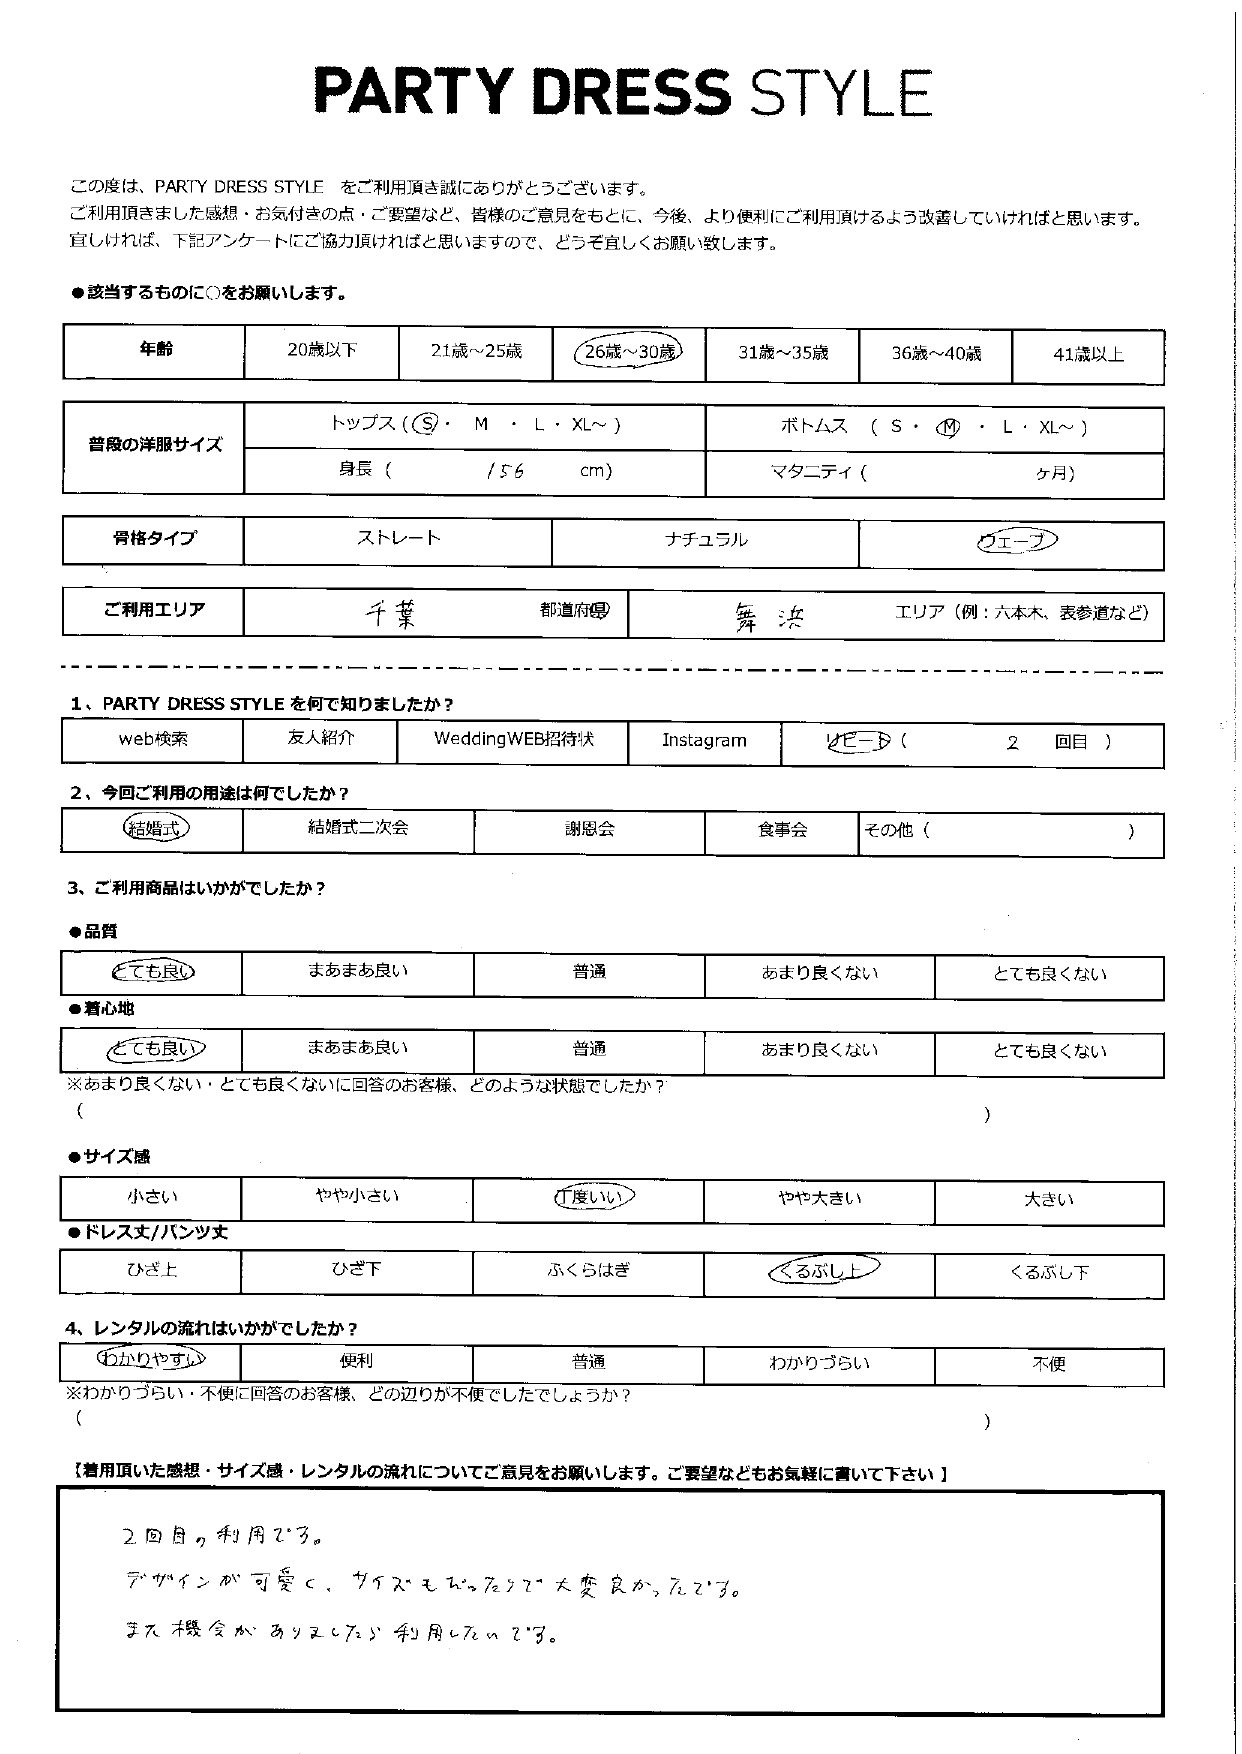 PARTY DRESS STYLE
この度は、PARTY DRESS STYLE をご利用頂き誠にありがとうございます。
ご利用頂きました感想・お気付きの点・ご要望など、皆様のご意見をもとに、今後、より便利にご利用頂けるよう改善していければと思います。
宜しければ、下記アンケートにご協力頂ければと思いますので、どうぞ宜しくお願い致します。
●該当するものに○をお願いします。
年齢 20歳以下 21歳～25歳 26歳～30歳 31歳～35歳 36歳～40歳 41歳以上
普段の洋服サイズ トップス (S・ M ・ L・XL～) ボトムス ( S・ M ・ L・XL～)
身長 ( 156 cm) マタニティ ( ヶ月)
骨格タイプ ストレート ナチュラル ウェーブ
ご利用エリア 千葉 都道府県 舞浜 エリア (例：六本木、表参道など)
1、PARTY DRESS STYLE を何で知りましたか？
web検索 友人紹介 WeddingWEB招待状 Instagram リピート ( 2 回目 )
2、今回ご利用の用途は何でしたか？
結婚式 結婚式二次会 謝恩会 食事会 その他 ( )
3、ご利用商品はいかがでしたか？
●品質
とても良い まあまあ良い 普通 あまり良くない とても良くない
●着心地
とても良い まあまあ良い 普通 あまり良くない とても良くない
※あまり良くない・とても良くないに回答のお客様、どのような状態でしたか？
( )
●サイズ感
小さい やや小さい 丁度いい やや大きい 大きい
●ドレス丈/パンツ丈
ひざ上 ひざ下 ふくらはぎ くるぶし上 くるぶし下
4、レンタルの流れはいかがでしたか？
わかりやすい 便利 普通 わかりづらい 不便
※わかりづらい・不便に回答のお客様、どの辺りが不便でしたでしょうか？
( )
【着用頂いた感想・サイズ感・レンタルの流れについてご意見をお願いします。ご要望などもお気軽に書いて下さい】
2回目の利用です。
デザインが可愛く、サイズもぴったりで大変良かったです。
また機会がありましたら利用したいです。